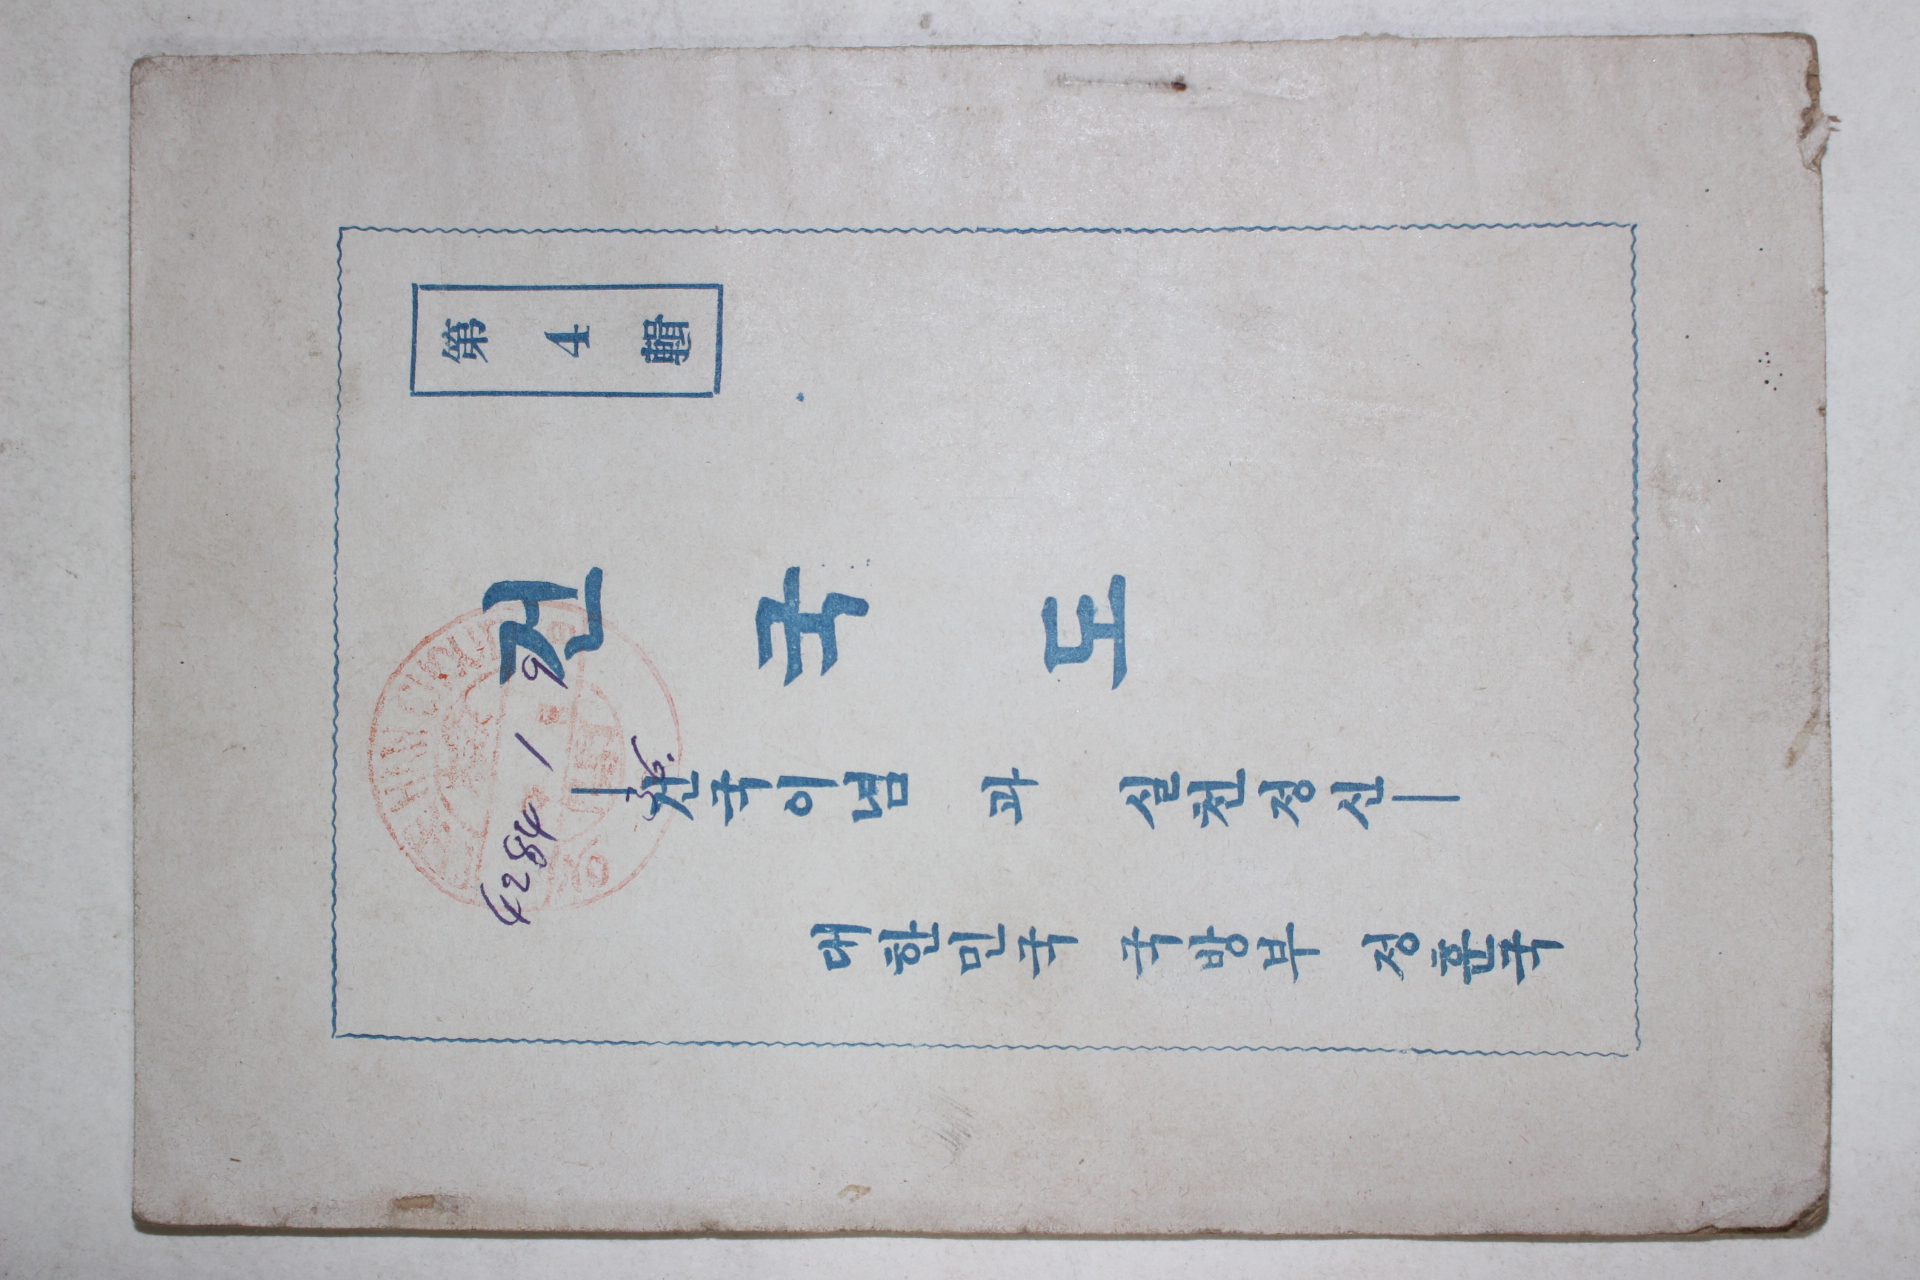 第4輯
건국도
―건국이념 과 실천정신―
대한민국 국방부 정훈국
4284 1 9